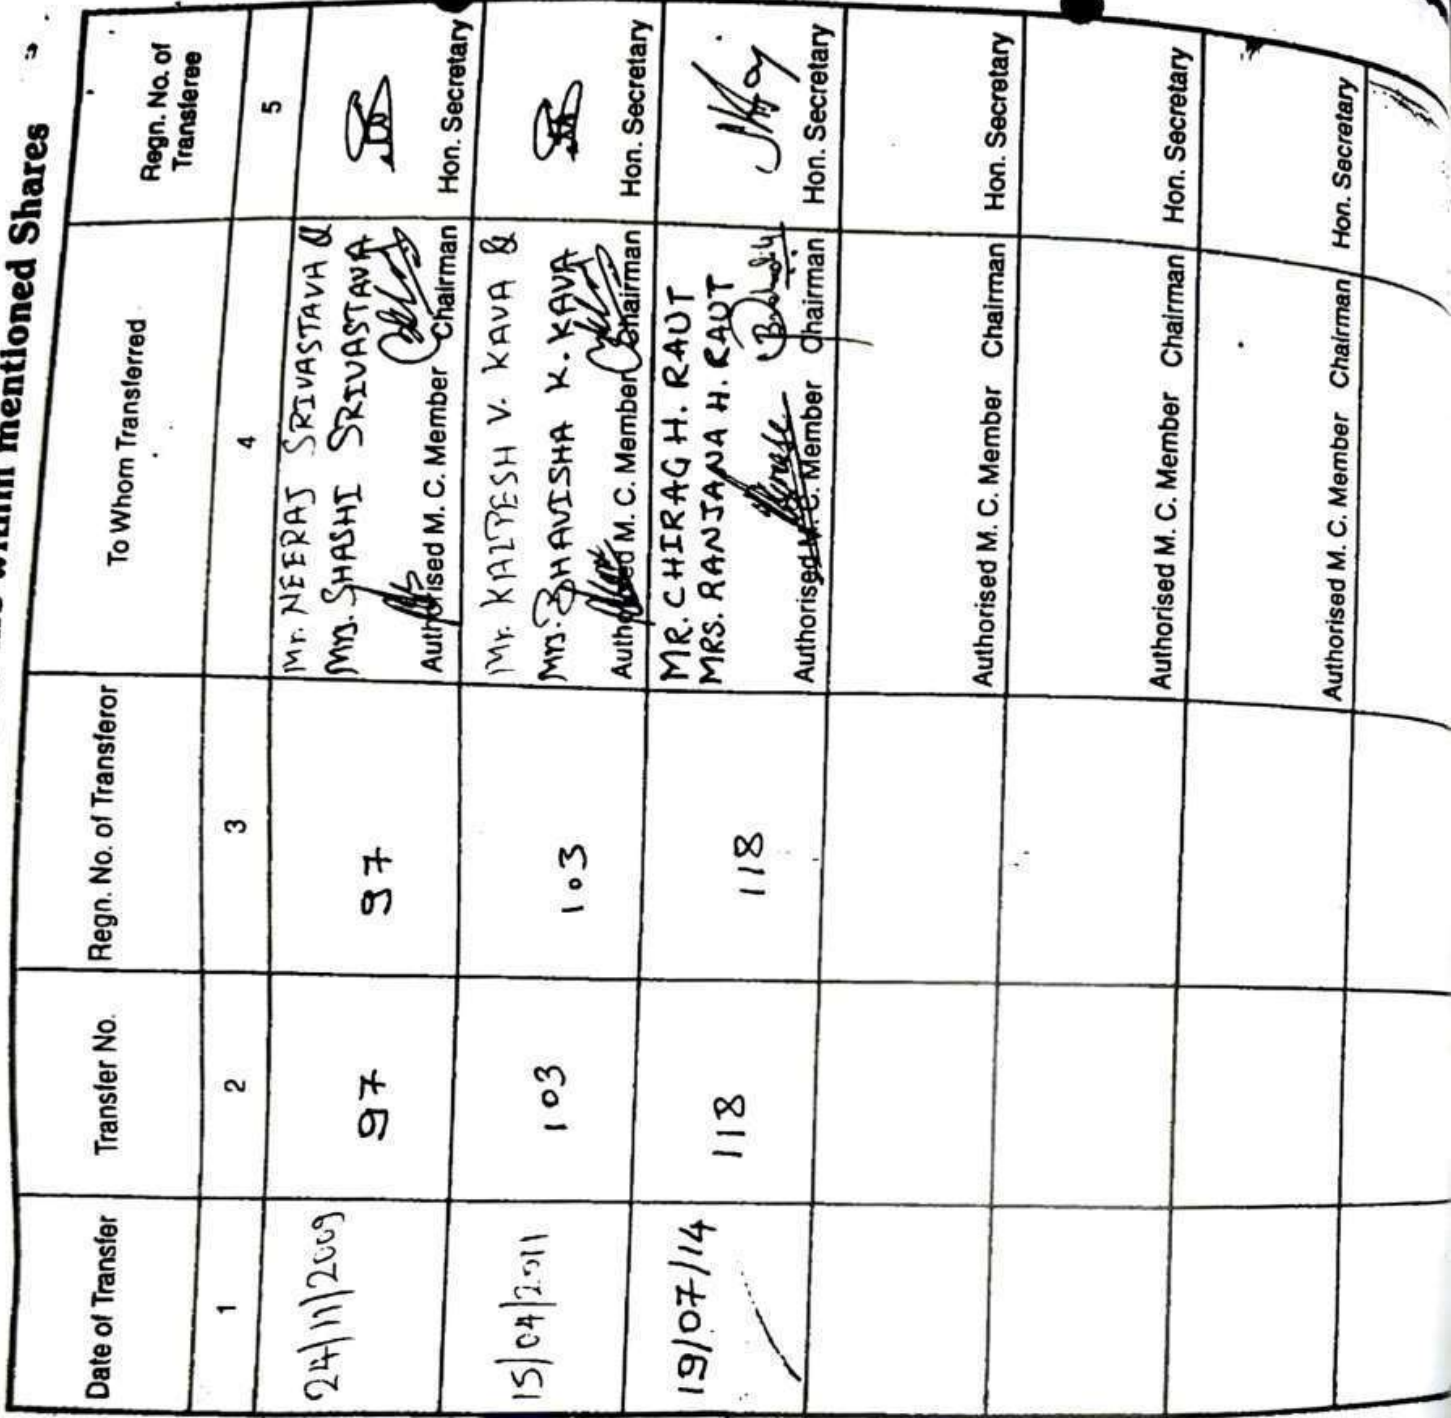 within mentioned Shares
Date of Transfer
Transfer No.
Regn. No. of Transferor
To Whom Transferred
Regn. No. of
Transferee
1
2
3
4
5
24/11/2009
97
97
Mr. NEERAJ SRIVASTAVA &
Mrs. SHASHI SRIVASTAVA
Authorised M. C. Member Chairman Hon. Secretary
15/04/2011
103
103
Mr. KALPESH V. KAVA &
Mrs. BHAVISHA K. KAVA
Authorised M. C. Member Chairman Hon. Secretary
19/07/14
118
118
MR. CHIRAG H. RAUT
MRS. RANJANA H. RAUT
Authorised M. C. Member Chairman Hon. Secretary
Authorised M. C. Member Chairman Hon. Secretary
Authorised M. C. Member Chairman Hon. Secretary
Authorised M. C. Member Chairman Hon. Secretary